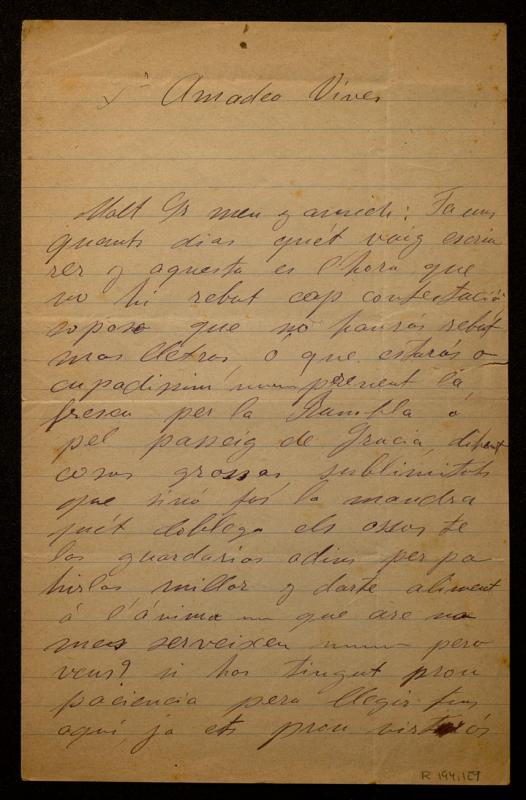 Amadeo Vives
Molt Sr meu y amich: Fa uns
quants dias quét vaig escriu
rer y aquesta es l'hora que
no hi rebut cap contestació
soposo que no haurás rebut
mas lletras o que estarás o
cupadissim prenent la
fresca per la Rambla ó
pel passeig de Gracia, dihent
cosas grossas sublimitats
que sinó fos la mandra
quét doblega els ossos te
las guardarias adins per pa
hirlas millor y darte aliment
á l'ánima que are no
mes serveixen pero
veus? si has tingut prou
paciencia pera llegir fins
aquí, ja ets prou virtuós
R 194.169